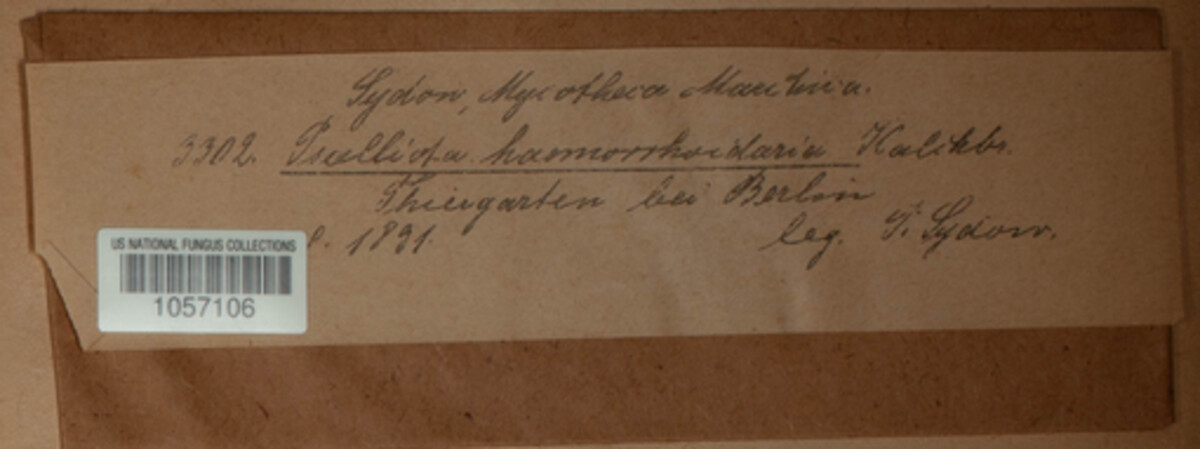 Sydow, Mycotheca Marchica.
3302. Psalliota haemorrhoidaria Kalchbr.
Thiergarten bei Berlin
1891. leg. P. Sydow.
US NATIONAL FUNGUS COLLECTIONS
1057106